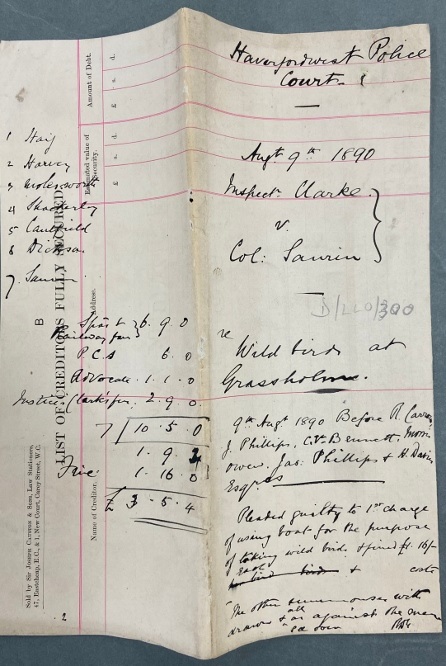 Haverfordwest Police
Court
Augt 9th 1890
Inspectr Clarke
v.
Col: Saurin
D/LLO/300
re
Wild birds at
Grassholme.
9th Augt 1890 Before R Carrow
J. Phillips, C.V. Bennett, Morris
Owen, Jas: Phillips & H Davies
Esqres
Pleaded guilty to 1st charge
of using boat for the purpose
of taking wild birds & fined £1. 16/-
each & costs
The other summonses with
drawn & all as against the men
1 Haig
2 Harvey
3 Molesworth
4
5 Caulfield
6 Dickson
7. Saurin
6. 9. 0
Railway fare
P.C.s 6. 0
Advocate 1. 1. 0
Justices Clerks fees 2. 9. 0
7 | 10 5 0
1. 9. 4
Fine 1. 16. 0
£ 3 - 5. 4
2
LIST OF CREDITORS FULLY SECURED
B
Amount of Debt.
£ s. d.
Estimated value of
Security.
£ s. d.
Address.
Name of Creditor.
Sold by Sir Joseph Causton & Sons, Law Stationers,
47, Eastcheap, E.C., & 1, New Court, Carey Street, W.C.